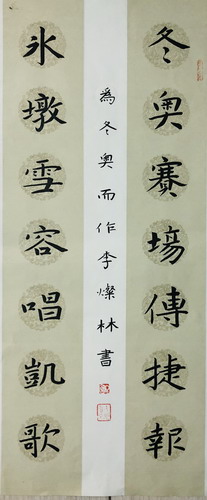 冬奥賽場傳捷報
冰墩雪容唱凱歌
為冬奥而作李燦林書